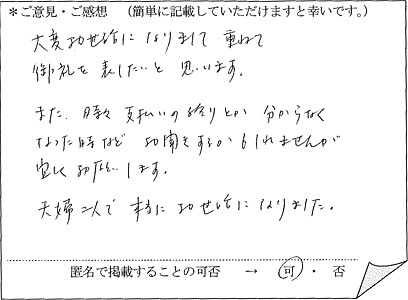 *ご意見・ご感想 (簡単に記載していただけますと幸いです。)
大変お世話になりまして 重ねて
御礼を 表したいと 思います。
また、時々 支払いの残りとか 分からなく
なった時など お聞きするかもしれませんが
宜しくお願いします。
夫婦二人で 本当に お世話になりました。
匿名で掲載することの可否 → 可 ・ 否